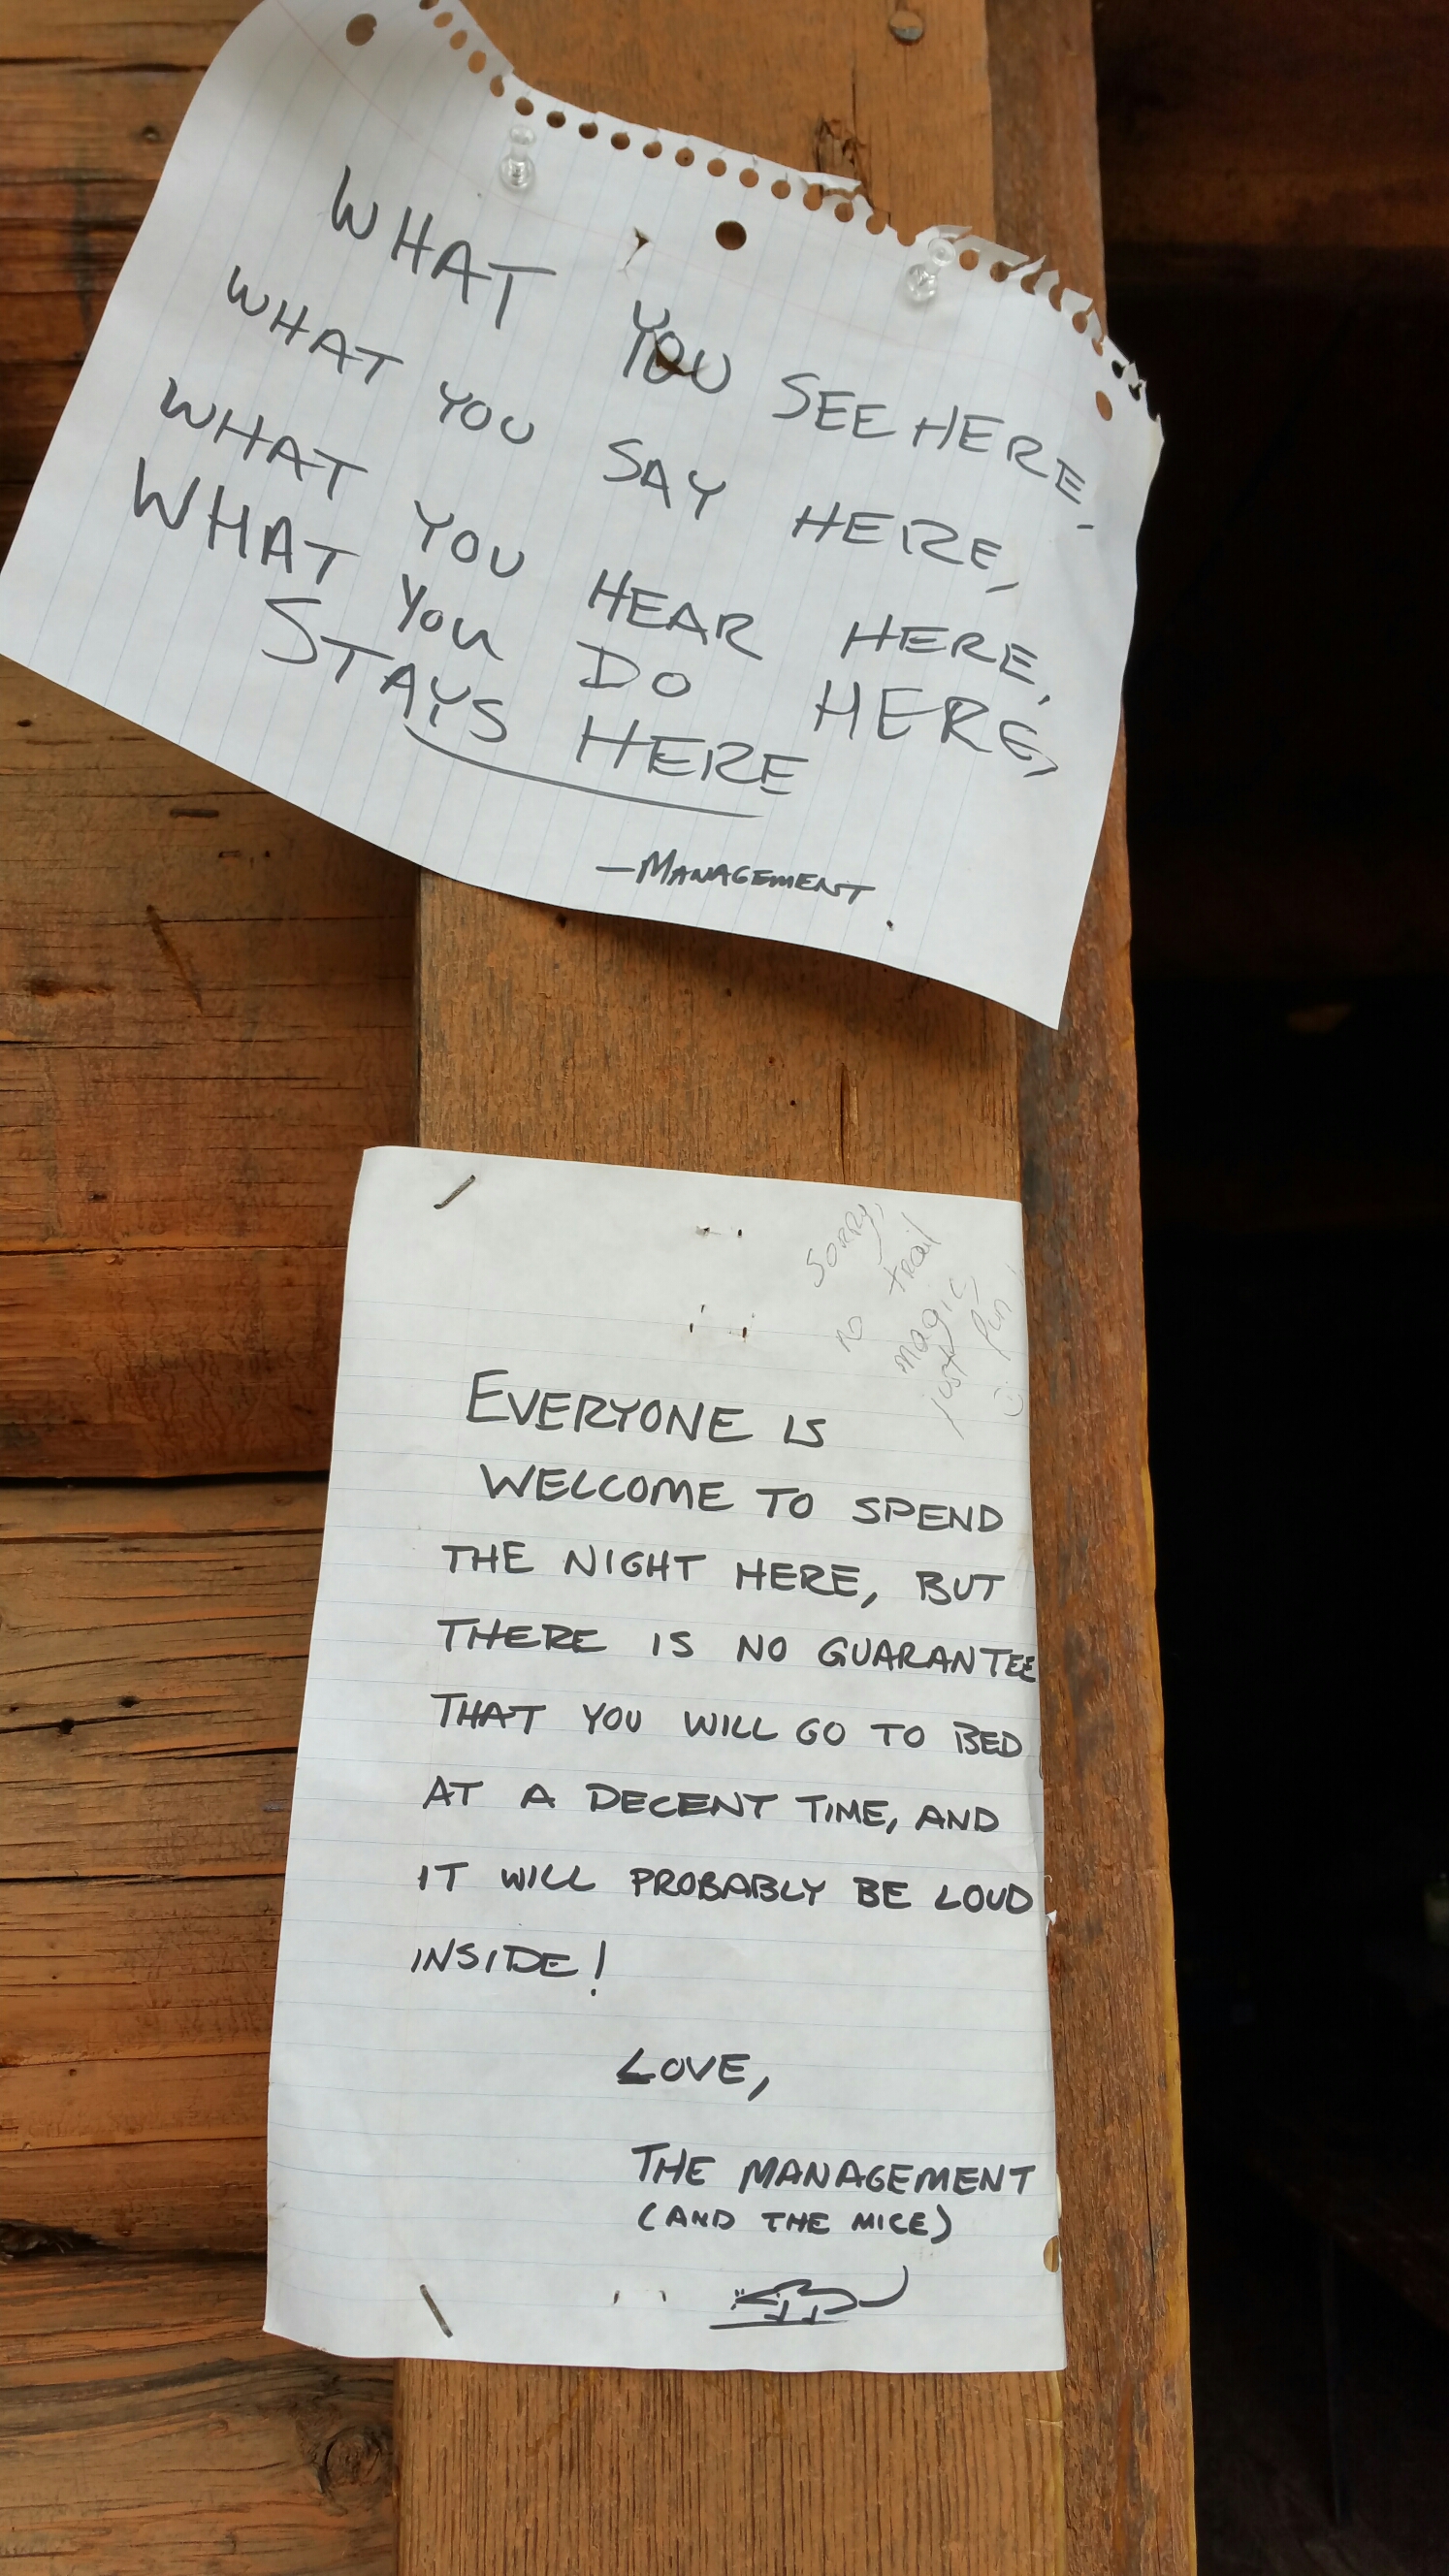 WHAT YOU SEE HERE,
WHAT YOU SAY HERE,
WHAT YOU HEAR HERE,
WHAT YOU DO HERE,
STAYS HERE
—MANAGEMENT
Sorry,
no trail
magic
just
fun
EVERYONE IS
WELCOME TO SPEND
THE NIGHT HERE, BUT
THERE IS NO GUARANTEE
THAT YOU WILL GO TO BED
AT A DECENT TIME, AND
IT WILL PROBABLY BE LOUD
INSIDE!
LOVE,
THE MANAGEMENT
(AND THE MICE)